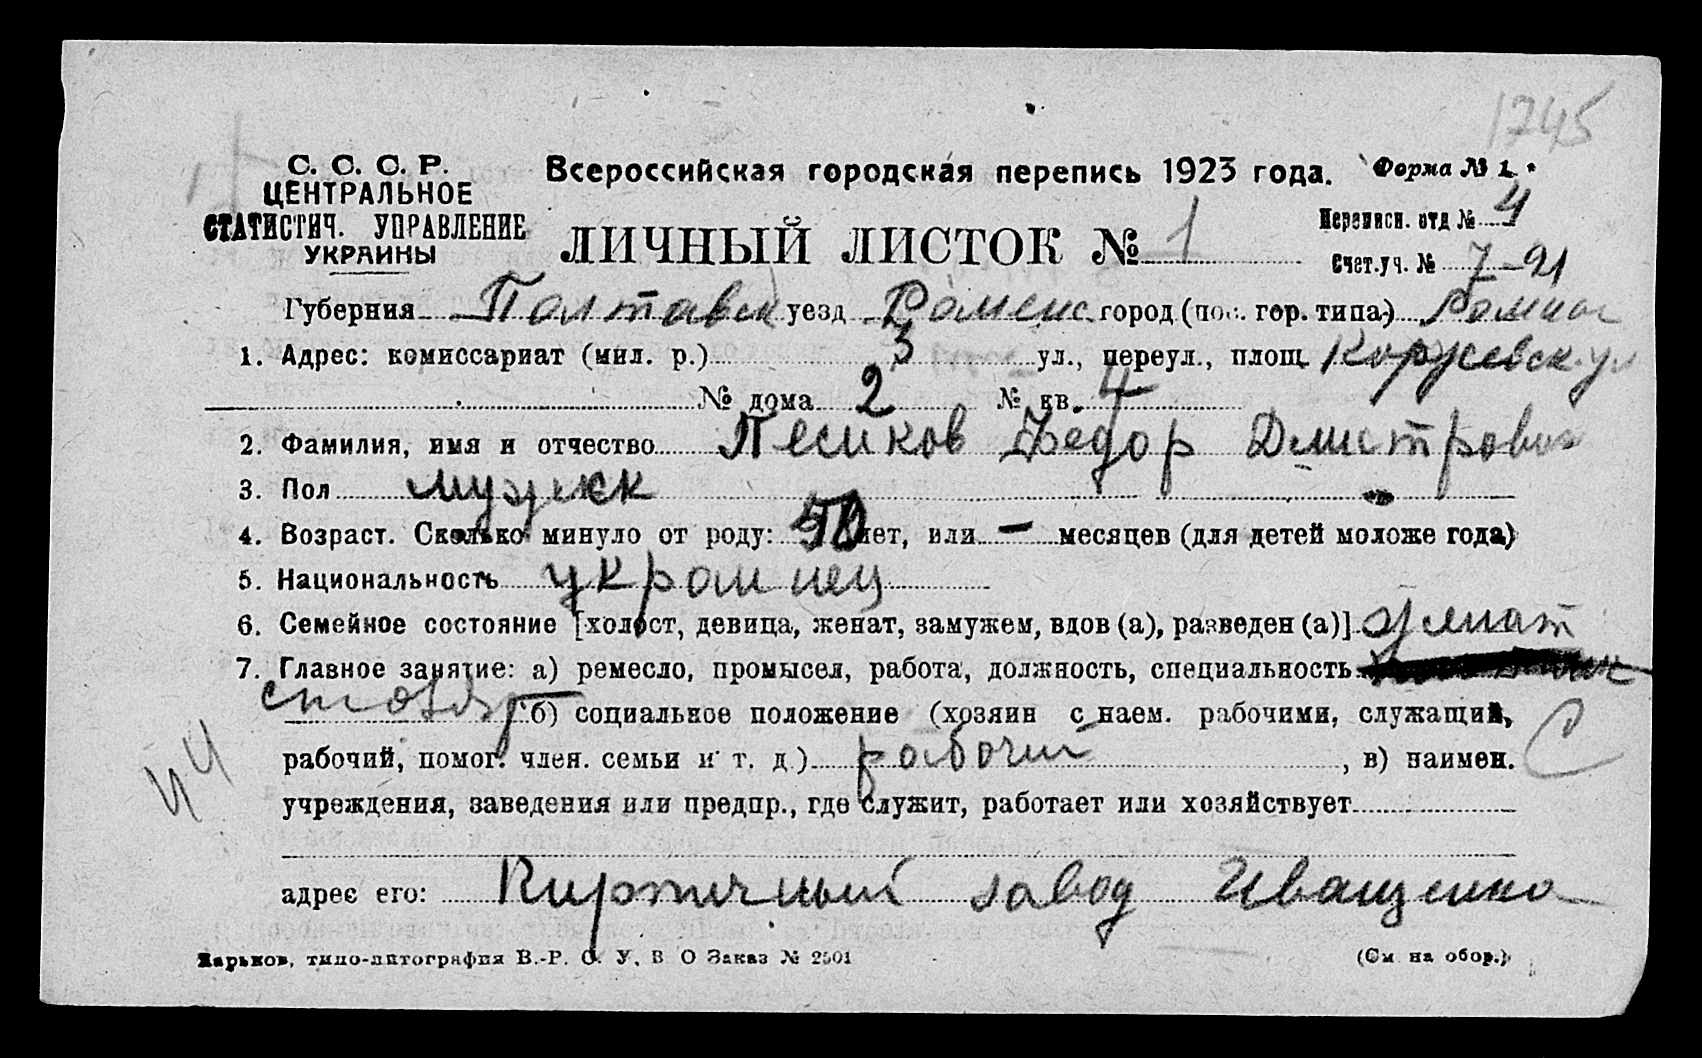 1745
С. С. С. Р.
ЦЕНТРАЛЬНОЕ
СТАТИСТИЧ. УПРАВЛЕНИЕ
УКРАИНЫ
Всероссийская городская перепись 1923 года.
Форма № 1.
ЛИЧНЫЙ ЛИСТОК № 1
Переписн. отд № 4
Счет.уч. № 7-91
Губерния Полтавск уезд Роменс город (пос. гор. типа)
1. Адрес: комиссариат (мил. р.) 3 ул., переул., площ. Коржевск. ул
№ дома 2 № кв. 4
2. Фамилия, имя и отчество Песиков Федор Дмитрович
3. Пол мужск
4. Возраст. Сколько минуло от роду: 50 лет, или — месяцев (для детей моложе года)
5. Национальность украинец
6. Семейное состояние [холост, девица, женат, замужем, вдов (а), разведен (а)] женат
7. Главное занятие: а) ремесло, промысел, работа, должность, специальность
столяр б) социальное положение (хозяин с наем. рабочими, служащий,
рабочий, помог. член. семьи и т. д.) рабочий, в) наимен.
учреждения, заведения или предпр., где служит, работает или хозяйствует
адрес его: Кирпичный завод Иващенко
Харьков, типо-литография В.-Р. С. У. В О Заказ № 2501
(См на обор.)
44
С